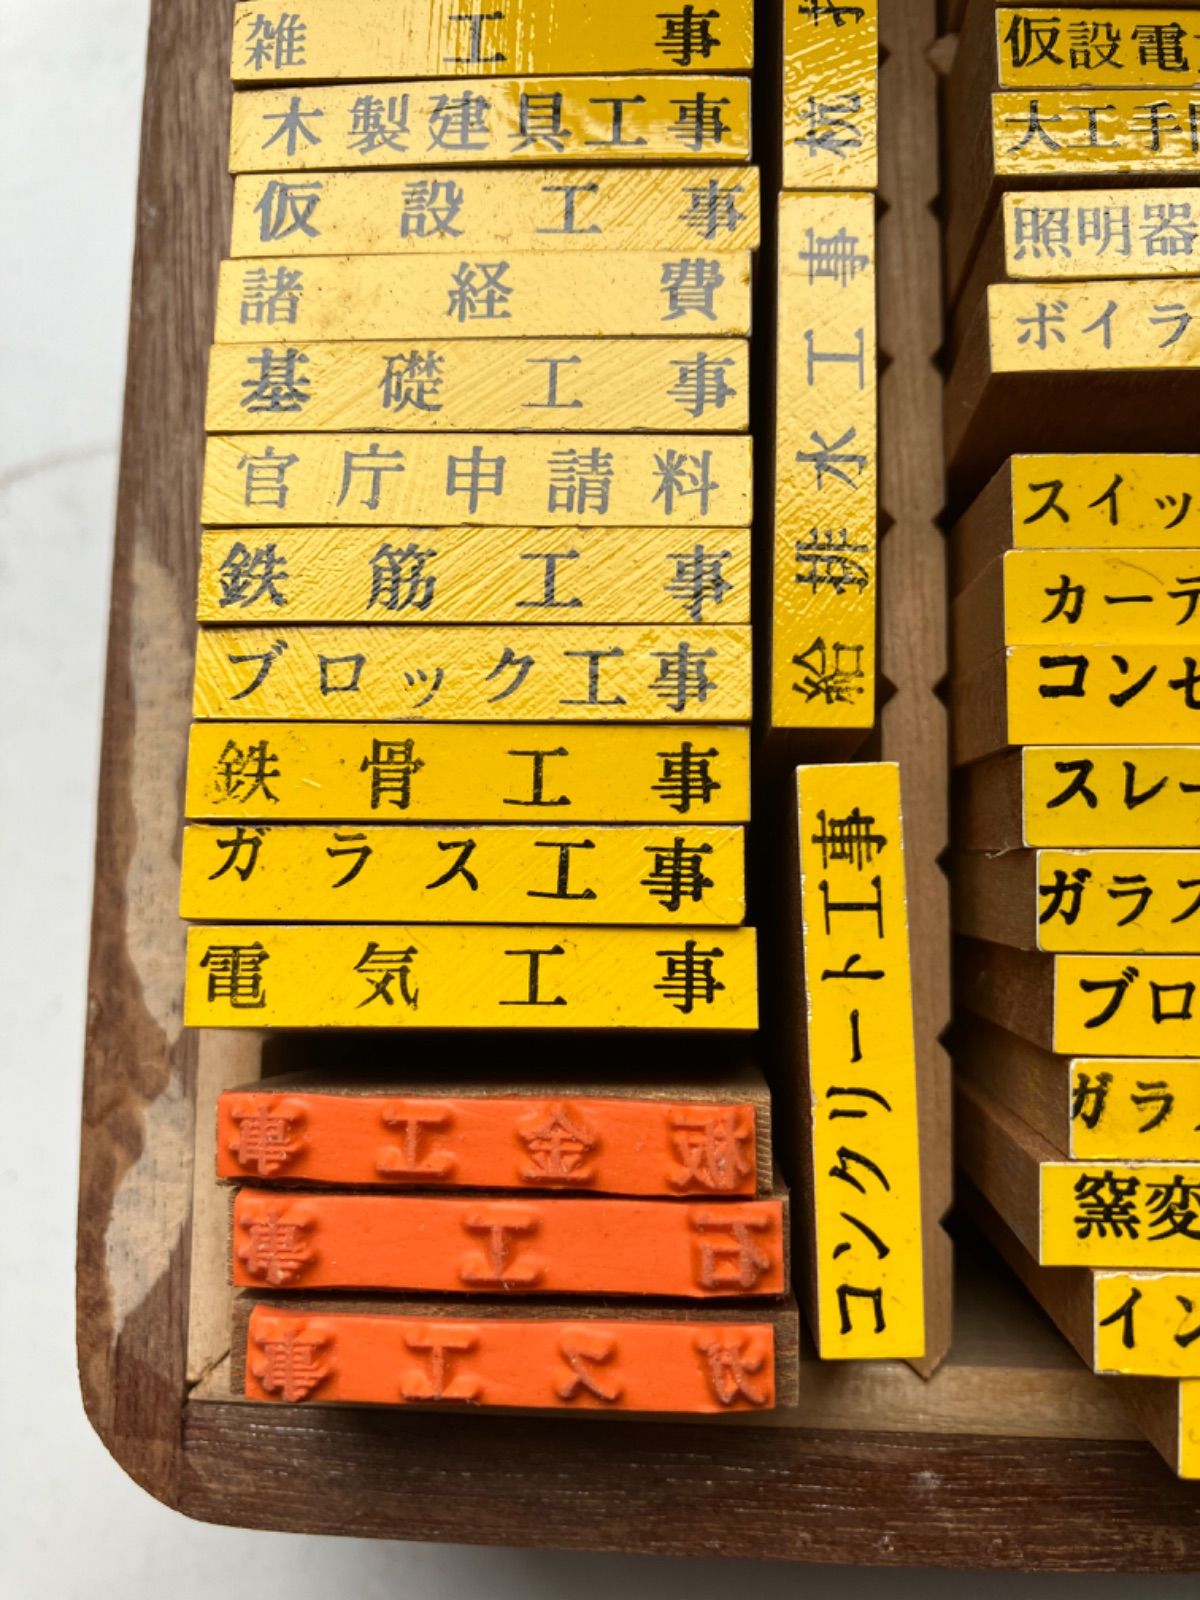 雑工事
木製建具工事
仮設工事
諸経費
基礎工事
官庁申請料
鉄筋工事
ブロック工事
鉄骨工事
ガラス工事
電気工事
板金工事
石工事
ガス工事
杭
給排水工事
コンクリート工事
仮設電
大工手
照明器
ボイラ
スイッ
カーテ
コンセ
スレー
ガラス
ブロ
ガラ
窯変
イン